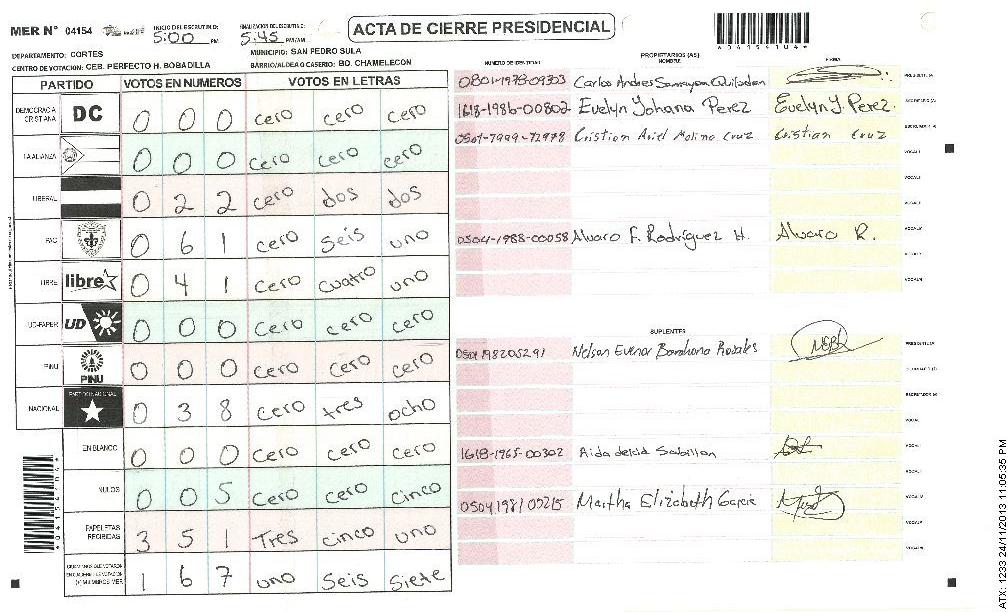 MER N° 04154
INICIO DEL ESCRUTINIO: 5:00 PM
FINALIZACION DEL ESCRUTINIO: 5:45 PM/AM
ACTA DE CIERRE PRESIDENCIAL
DEPARTAMENTO: CORTES
MUNICIPIO: SAN PEDRO SULA
CENTRO DE VOTACION: CEB. PERFECTO H. BOBADILLA
BARRIO/ALDEA O CASERIO: BO. CHAMELECON
PARTIDO VOTOS EN NUMEROS VOTOS EN LETRAS
DEMOCRACIA CRISTIANA DC 0 0 0 cero cero cero
LA ALIANZA 0 0 0 cero cero cero
LIBERAL 0 2 2 cero dos dos
PAC 0 6 1 cero seis uno
LIBRE libre 0 4 1 cero cuatro uno
UD-FAPER UD 0 0 0 cero cero cero
PINU PINU 0 0 0 cero cero cero
NACIONAL PARTIDO NACIONAL 0 3 8 cero tres ocho
EN BLANCO 0 0 0 cero cero cero
NULOS 0 0 5 cero cero cinco
PAPELETAS RECIBIDAS 3 5 1 Tres cinco uno
1 6 7 uno seis siete
NUMERO DE IDENTIDAD PROPIETARIOS (AS) NOMBRE FIRMA
0801-1978-09303 Carlos Andres
1618-1986-00802 Evelyn Yohana Perez Evelyn Y. Perez.
Cristian Ariel Molina Cruz Cristian Cruz
0504-1988-00058 Alvaro F. Rodríguez H. Alvaro R.
SUPLENTES
Nelson
1618-1965-00302 Aida
Martha Elizabeth Garcia
ATX: 1233 24/11/2013 11:05:35 PM